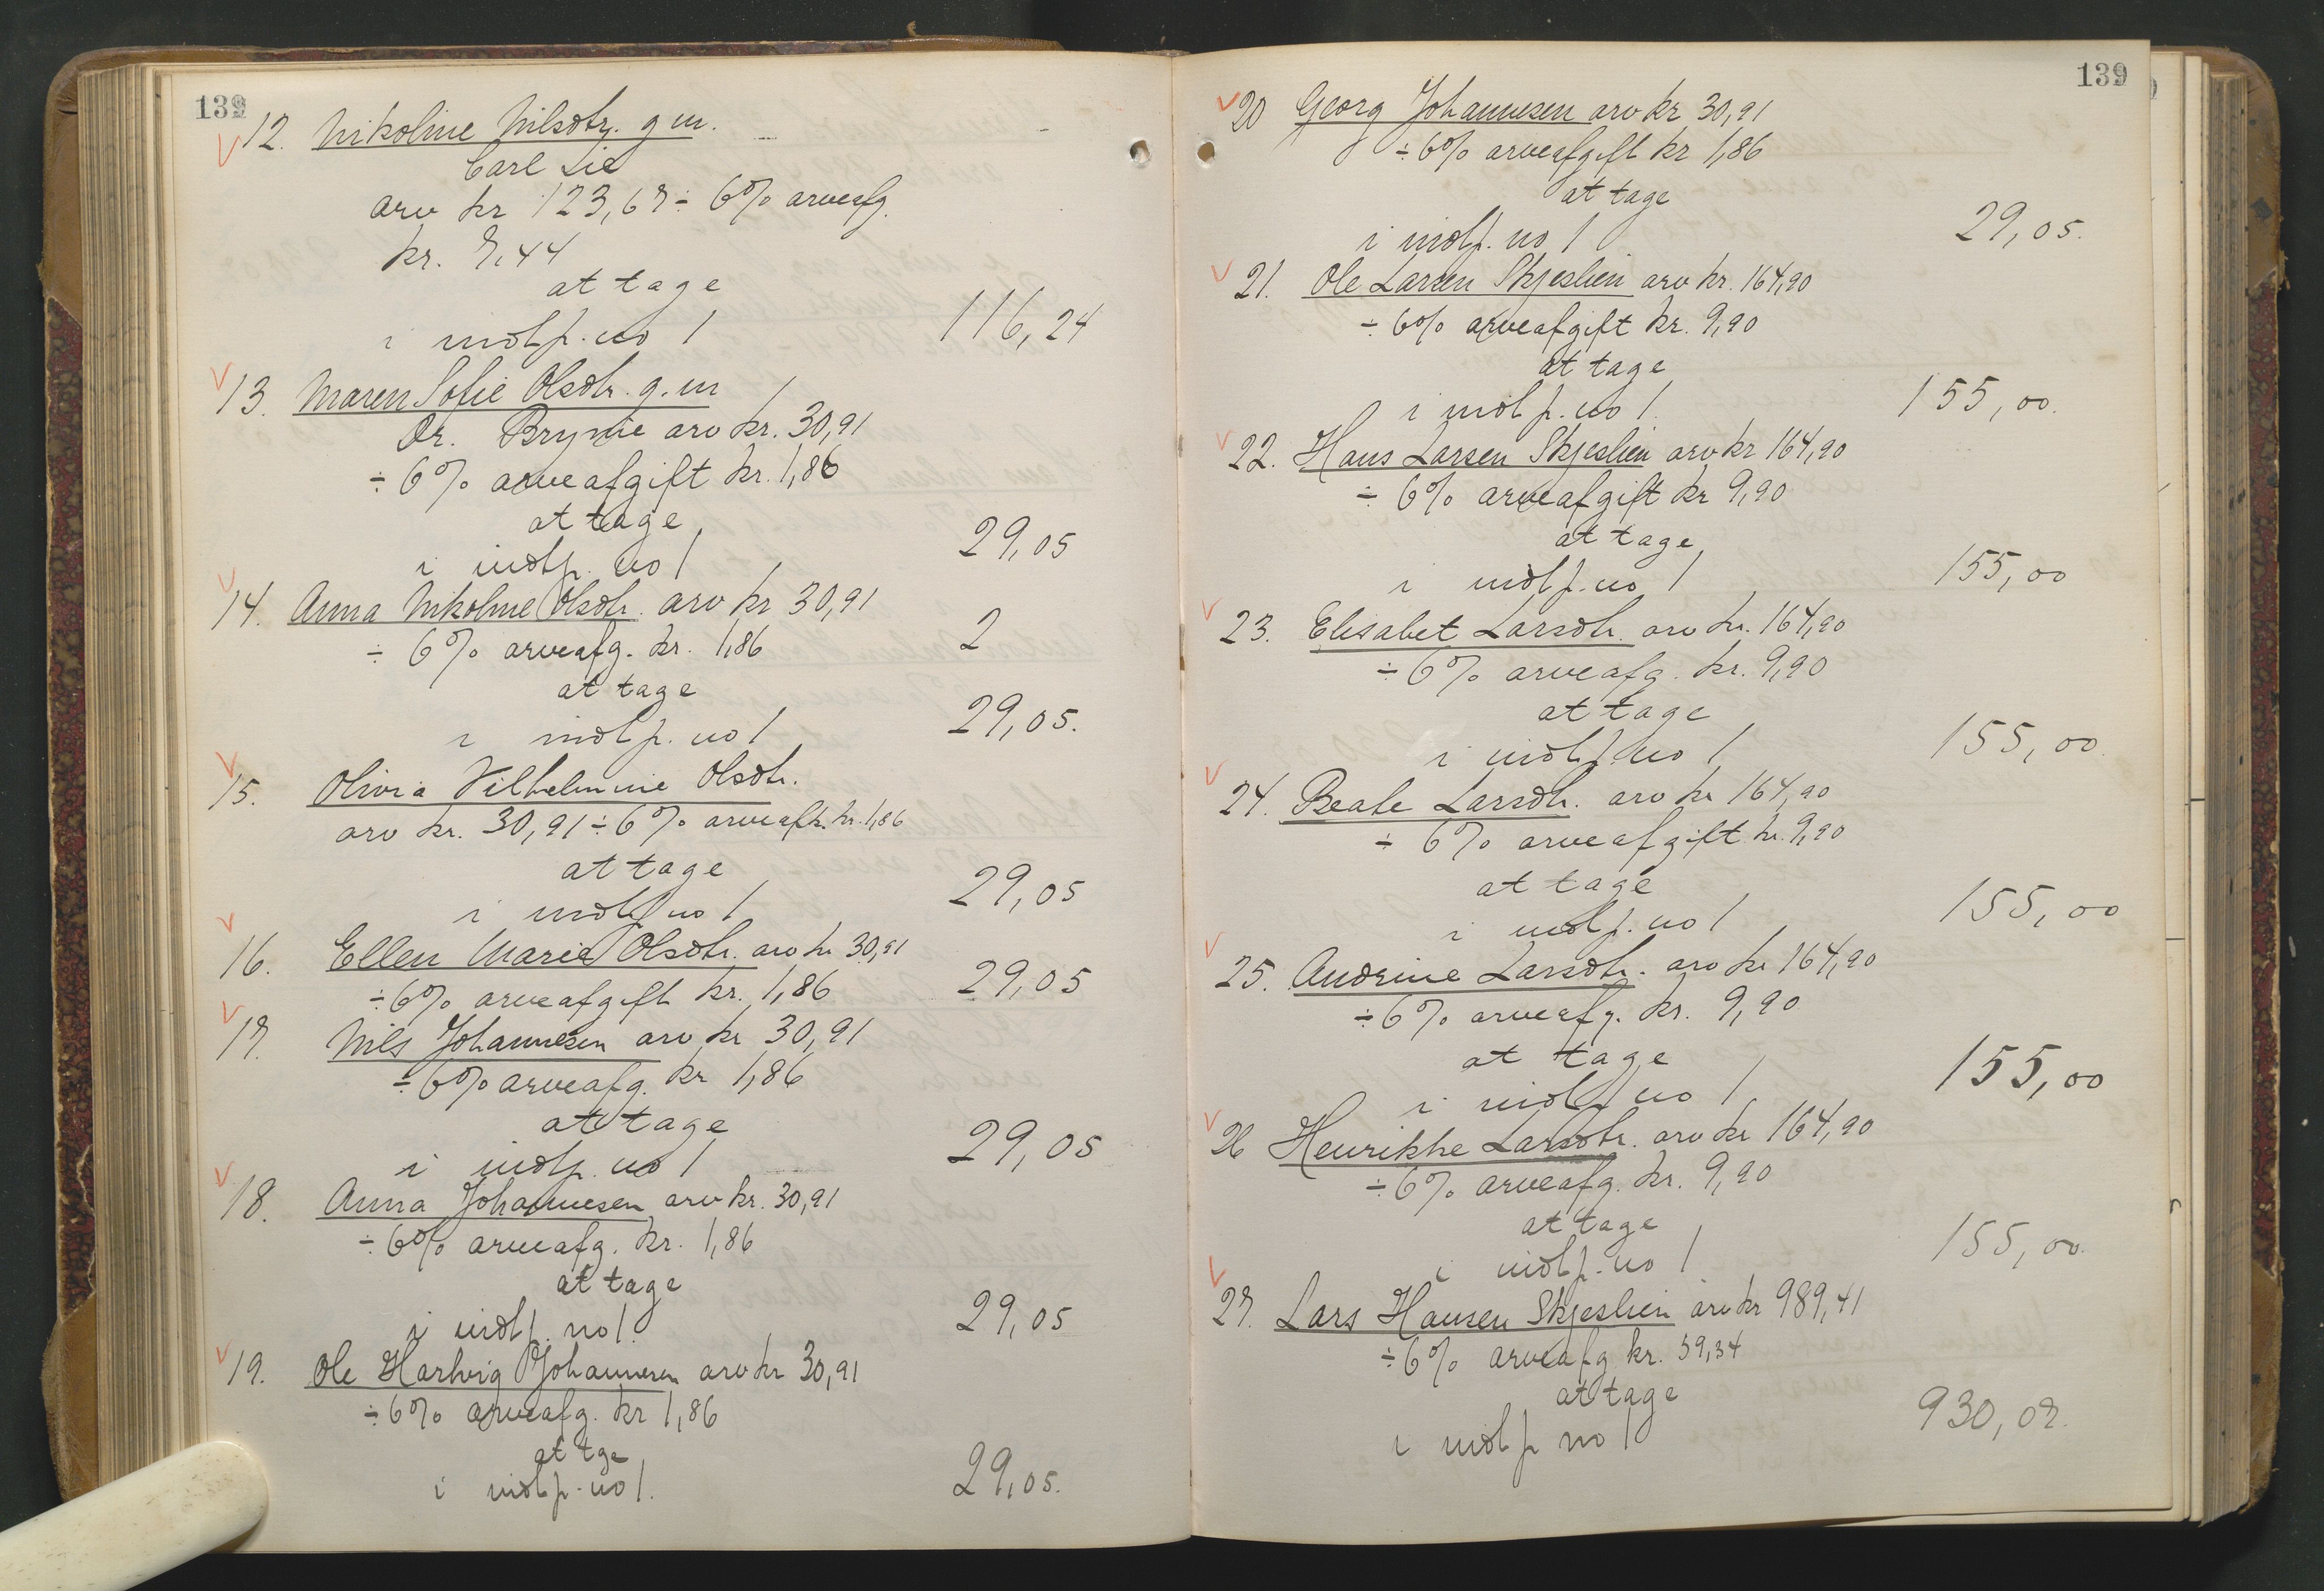 139
12. Nikoline Nilsdtr. g m.
Carl Lie
arv kr 123,67 ÷ 6% arveafg.
kr. 7,44
at tage
i indtp. no 1 116,24
13. Maren Sofie Olsdtr. g. m
Dr. Brynie arv kr. 30,91
÷ 6% arveafgift kr. 1,86
at tage
i indtp. no 1 29,05
14. Anna Nikoline Olsdtr. arv kr 30,91
÷ 6% arveafg. kr. 1,86 2
at tage
i indtp. no 1 29,05.
15. Olivia Vilhelmine Olsdtr.
arv kr. 30,91 ÷ 6% arveaft. kr. 1,86
at tage
i indtp no 1 29,05
16. Ellen Marie Olsdtr. arv kr 30,91
÷ 6% arveafgift kr. 1,86 29,05
17. Nils Johannesen arv kr 30,91
÷ 6% arveafg. kr 1,86
at tage
i indtp. no 1 29,05
18. Anna Johannesen arv kr. 30,91
÷ 6% arveafg. kr. 1,86
at tage
i indtp. no 1. 29,05
19. Ole Hartvig Johannesen arv kr 30,91
÷ 6% arveafg. kr 1,86
at tge
i indtp. no 1. 29,05.
139
20 Georg Johannesen arv kr 30,91
÷ 6% arveafgift kr 1,86
at tage
i indtp. no 1 29,05.
21. Ole Larsen Skjeslien arv kr. 164,90
÷ 6% arveafgift kr. 9,90
at tage
i indtp. no 1. 155,00.
22. Hans Larsen Skjeslien arv kr 164,90
÷ 6% arveafgift kr 9,90
at tage
i indtp. no 1 155,00
23. Elisabet Larsdtr. arv kr. 164,90
÷ 6% arveafg. kr. 9,90
at tage
i indtp. no 1 155,00
24. Beate Larsdtr. arv kr 164,90
÷ 6% arveafgift kr. 9,90
at tage
i indtp. no 1 155,00
25. Andrine Larsdtr. arv kr 164,90
÷ 6% arveafg. kr. 9,90
at tage
i indtp no 1 155,00
26 Henrikke Larsdtr. arv kr 164,90
÷ 6% arveafg. kr. 9,90
at tage
i indtp. no 1 155,00.
27. Lars Hansen Skjeslien arv kr 989,41
÷ 6% arveafg kr. 59,34
at tage
i indtp no 1 930,07.